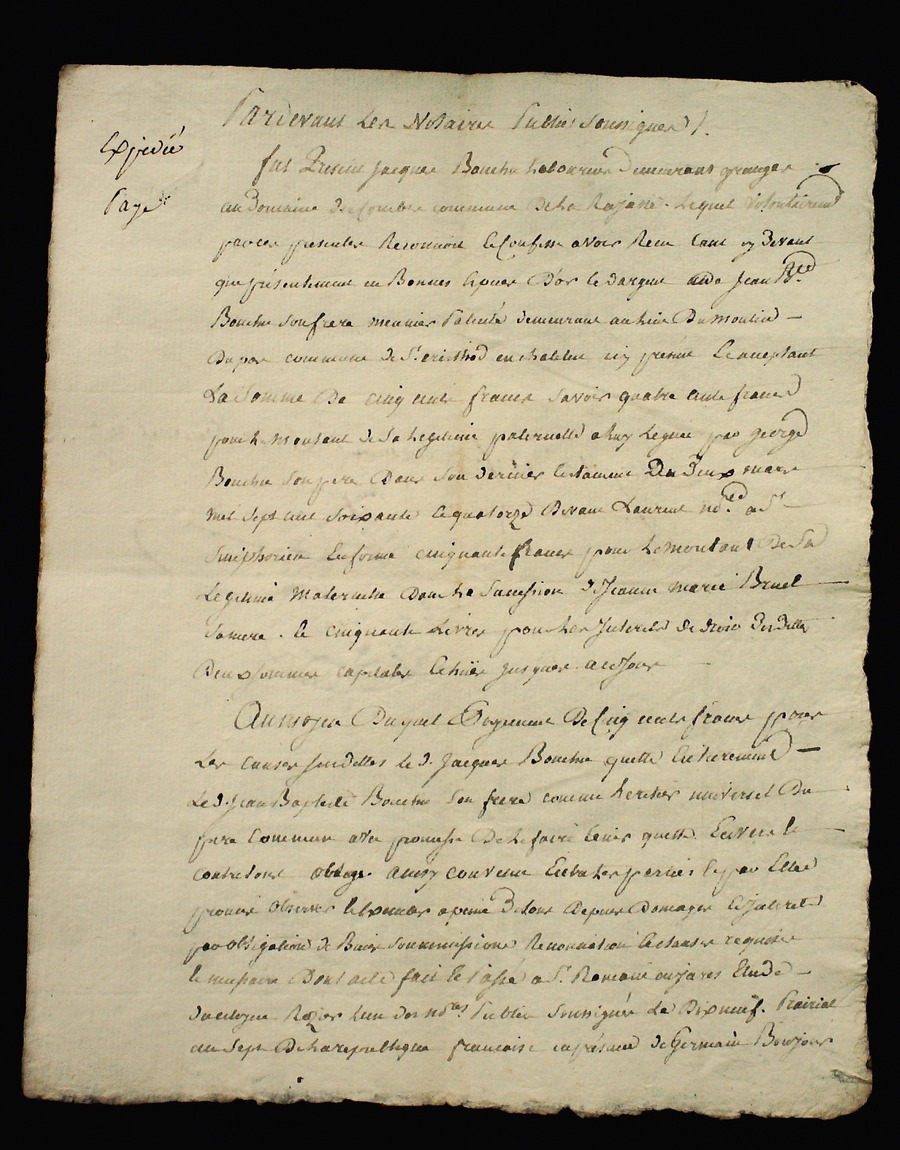 Pardevant Les Notaires Publics Soussignés
Expédié
Payé
fut Present Jacques Bouchu Laboureur Demeurant granger
au Domaine De Combe commune De La Rajasse. Lequel volontairement
par ces presentes Reconnoit et Confesse avoir Recu tant cy Devant
que présentement en Bonnes Especes D'or et d'argent de Jean Bte
Bouchu son frere meunier Patenté demeurant au lieu Du moulin
Du pas commune de St. christhod en chatelus icy présent Et acceptant
La Somme De cinq cents francs Savoir quatre cents francs
pour Le montant de Sa Legitime paternelle a luy Leguee par George
Bouchu Son pere Dans Son dernier testament Du Deux mars
mil Sept cent Soixante et quatorze Devant Laurent nore a St
Simphorien Ensemble cinquante francs pour Le montant De Sa
Legitime Maternelle Dans La Succession De Jeanne Marie Bruel
Sa mere. Et cinquante Livres pour Les Interets De Droit Desdittes
Deux Sommes capitales Echues Jusques a ce Jour
Au moyen Duquel Payement De Cinq cents francs pour
Les causes Susdittes Le d. Jacques Bouchu quitte Entierement
Le d. Jean Baptiste Bouchu Son frere comme heritier universel Du
pere Commun avec promesse De Le faire tenir quitte Envers Et
Contre tous ainsy convenu Entre Les parties Et par Elles
promis Observer Et Executer a peine De tous Depens Domages Et Interets
par obligation de Biens Soummissions Renonciation Et clauses requises
Et necessaire Dont acte fait Et Passé a St. Romain en jarez Etude
Du citoyen Rozier L'un des nores Publics Soussignés Le Dixneuf Prairial
an Sept De La republique francoise en présence De Germain Bonjour